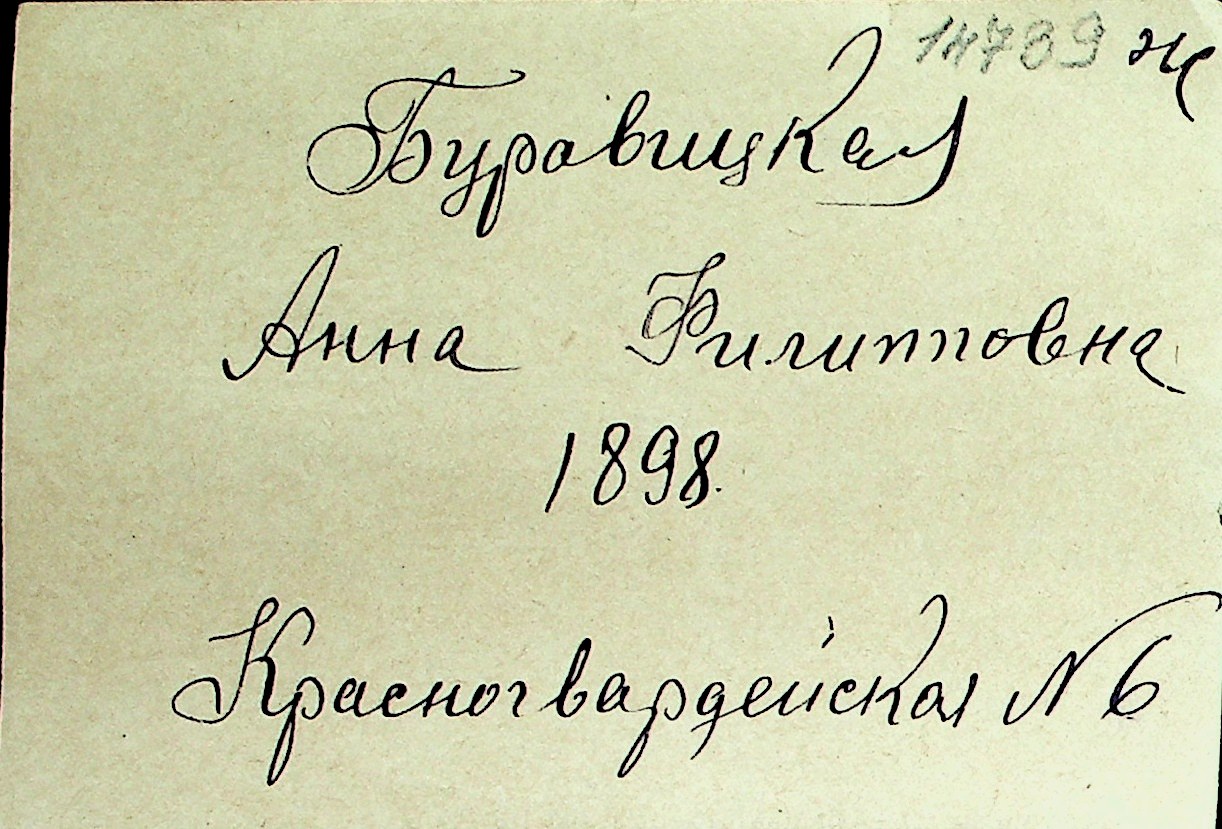 14739 ж
Буравицкая
Анна Филипповна
1898.
Красногвардейская N 6